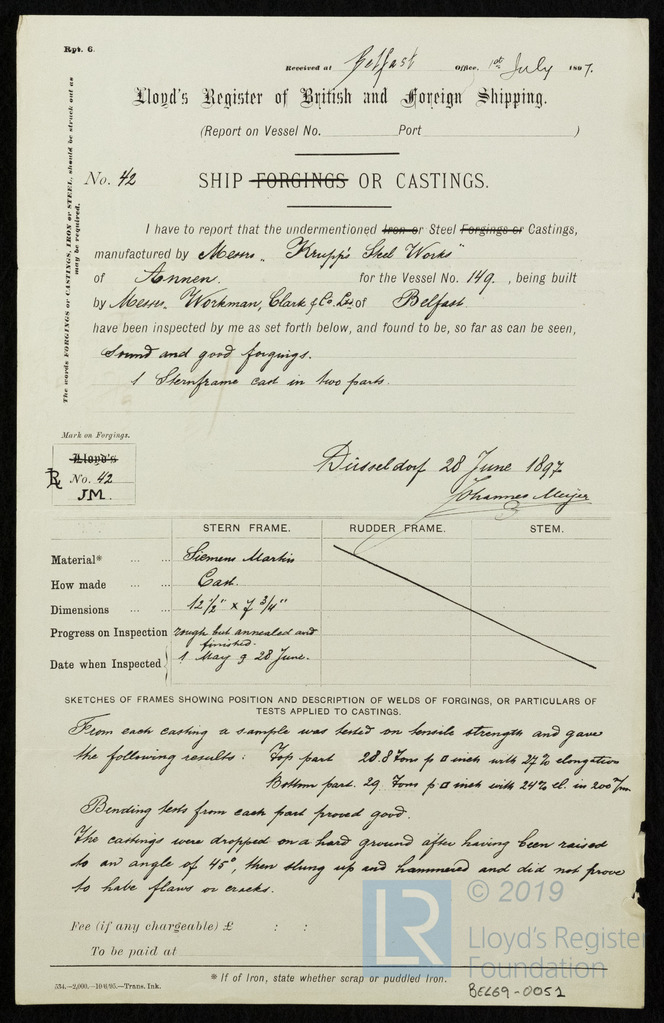 Rpt. 6.
Received at Belfast Office, 1st July 1897.
Lloyd's Register of British and Foreign Shipping.
(Report on Vessel No. Port )
The words FORGINGS or CASTINGS, IRON or STEEL, should be struck out as may be required.
No. 42
SHIP FORGINGS OR CASTINGS.
I have to report that the undermentioned Iron or Steel Forgings or Castings,
manufactured by Messrs. "Krupp's Steel Works"
of Annen. for the Vessel No. 149. , being built
by Messrs. Workman, Clark & Co. Ld. of Belfast
have been inspected by me as set forth below, and found to be, so far as can be seen,
sound and good forgings.
1 Sternframe cast in two parts.
Mark on Forgings.
Lloyd's
No. 42
JM.
Düsseldorf 28 June 1897
Johannes Meijer
STERN FRAME. RUDDER FRAME. STEM.
Material* Siemens Martin
How made Cast.
Dimensions 12 1/2" x 7 3/4"
Progress on Inspection rough but annealed and
finished.
Date when Inspected 1 May & 28 June.
SKETCHES OF FRAMES SHOWING POSITION AND DESCRIPTION OF WELDS OF FORGINGS, OR PARTICULARS OF
TESTS APPLIED TO CASTINGS.
From each casting a sample was tested on tensile strength and gave
the following results: Top part 28.8 Tons p □ inch with 27% elongation
Bottom part. 29 Tons p □ inch with 24% el. in 200 m/m.
Bending tests from each part proved good.
The castings were dropped on a hard ground after having been raised
to an angle of 45°, then slung up and hammered and did not prove
to have flaws or cracks.
Fee (if any chargeable) £ : :
To be paid at
* If of Iron, state whether scrap or puddled Iron.
534.—2,000.—10/6/95.—Trans. Ink.
LR
© 2019
Lloyd's Register
Foundation
BEL69-0051